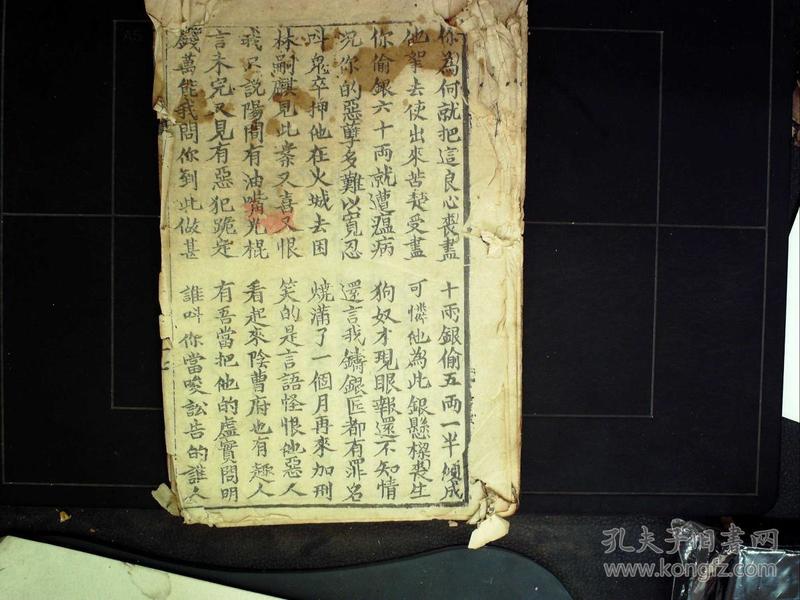 你為何就把這良心喪盡 十兩銀偷五兩一半傾成
他拏去使出來苦楚受盡 可憐他為此銀懸樑喪生
你偷銀六十兩就遭瘟病 狗奴才現眼報還不知情
況你的惡孽多難以寬忍 還言我鑄銀匠都有罪名
呌鬼卒押他在火城去困 燒滿了一個月再來加刑
林嗣麒見此案又喜又恨 笑的是言語怪恨他惡人
我只說陽間有油嘴光棍 看起來陰曹府也有趣人
言未完又見有惡犯跪定 有吾當把他的虛實問明
錢萬能我問你到此做甚 誰呌你當唆訟告的誰人
孔夫子旧書网
kongfz.com